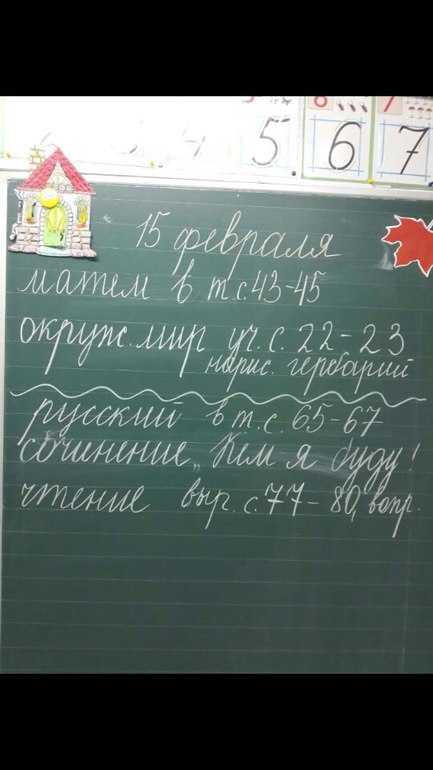 5 6 7
15 февраля
матем в т.с.43-45
окруж.мир уч.с.22-23
нарис. гербарий
русский в т.с.65-67
сочинение „Кем я буду!
чтение выр.с.77-80, вопр.